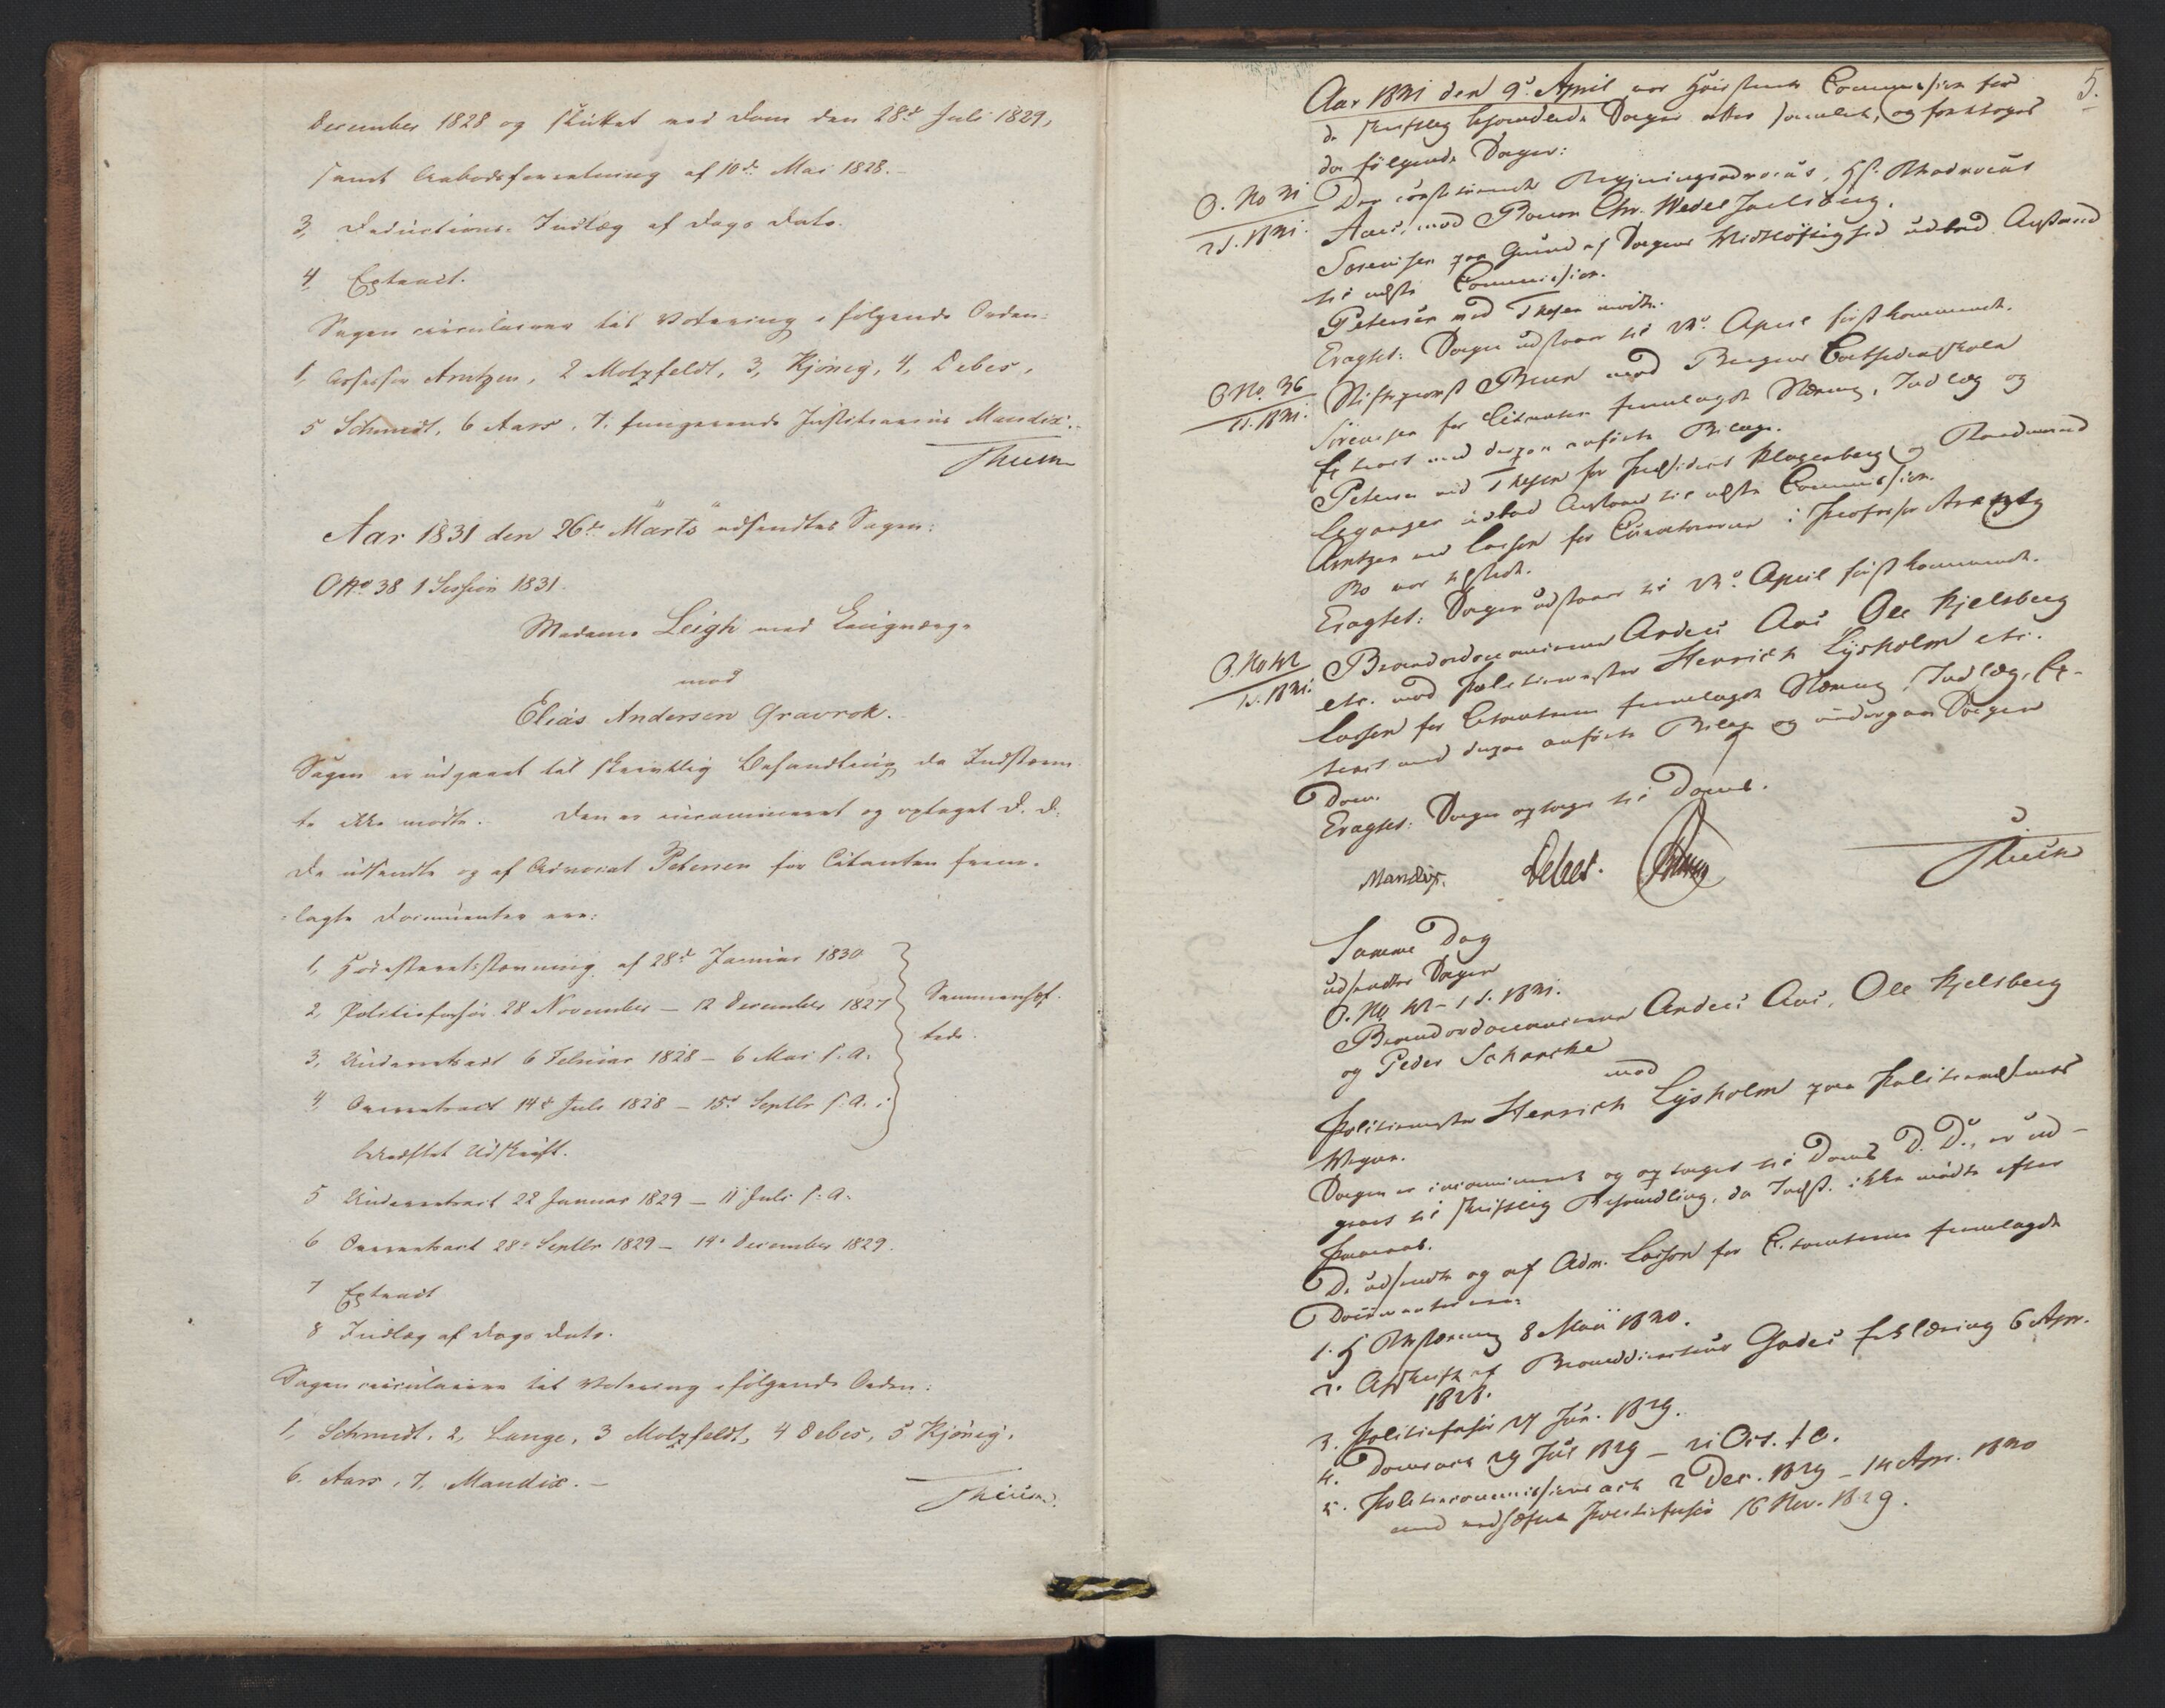 December 1828 og sluttet ved Dom den 28de Juli 1829,
samt Aabodsforretning af 10de Mai 1828.-
3, Deductions-Indlæg af Dags Dato.
4 Extract.
Sagen circulerer til Votering i følgende Orden:
1, Assessor Arntzen, 2 Motzfeldt, 3, Kjönig, 4, Debes,
5 Schmidt, 6 Aars, 7. fungerende Justitiarius Mandix.-
Thuen
Aar 1831 den 26de Marts udsendtes Sagen:
O No 38 1 Session 1831.
Madame Leigh med Laugværge
mod
Elias Andersen Gravrok.
Sagen er udgaaet til skriftlig Behandling da Indstævn
te ikke mødte. Den er incamineret og optaget D. D.
De udsendte og af Advocat Petersen for Citanten frem-
lagte Documenter ere:
1, Höiesteretsstævning af 28de Januar 1830
2, Politieforhør 28 November - 12 December 1827
3, Underretsact 6 Februar 1828 - 6 Mai s. A.
4, Overretsact 14de Juli 1828 - 15de Septbr s. A. i
bekræftet Udskrift.
Sammenhef-
tede.
5 Underretsact 22 Januar 1829 - 11 Juli s. A.
6 Overretsact 28de Septbr 1829 - 14de December 1829.
7 Extract
8 Indlæg af Dags Dato.
Sagen circulerer til Votering i følgende Orden:
1, Schmidt, 2, Lange, 3 Motzfeldt, 4 Debes, 5 Kjönig,
6. Aars, 7, Mandix.-
Thuen.
5.
Aar 1831 den 9de April var Høiesterets Commission for
de skriftlig behandlede Sager atter samlet, og foretoges
der følgende Sager:
O. No 31
2 S. 1831.
Den constituerede Regjeringsadvocat, Hst. Advocat
Aars, mod Baron Chr. Wedel Jarlsberg.
Sörensen paa Grund af Sagens Vidtløftighed udbad Anstand
til næste Commission.
Petersen med Thesen mødte.
Eragtet: Sagen udstaaer til 23de April førstkommende.
O No. 36
1 S. 1831.
Stiftsprovst Bruun mod Bergens Cathedralskole
Sörensen for Citanten fremlagde Stævning, Indlæg og
Extract med derpaa anførte Bilage.
Petersen ved Thesen for Præsident Klagenberg og Raadmand
Leganger udbad Anstand til næste Commission.
Arntzen ved Lasson for Curatorerne i Professor Arentz
Bo var tilstede.
Eragtet: Sagen udstaaer til 23de April førstkommende.
O. No 42
1 S. 1831.
Brandordonnancerne Anders Aas Ole Kjelsberg
etc. mod Politiemester Henrich Lysholm etc.
Lasson for Citanterne fremlagde Stævning, Indlæg, Ex-
tract med derpaa anførte Bilag og undergav Sagen
Dom.
Eragtet: Sagen optages til Doms.
Mandix. Debes.
Thuen
Samme Dag
udsendtes Sagen
O. No 42 - 1 S. 1831.
Brandordonnancerne Anders Aas, Ole Kjelsberg
og Peder Schancke
mod
Politiemester Henrich Lysholm paa Politievæsenets
Vegne.
Sagen er incamineret og optaget til Doms D. D., er ud-
gaaet til skriftlig Behandling, da Indst. ikke mødte efter
Paaraab.
De udsendte og af Adv. Lasson for Citanterne fremlagde
Documenter ere:
1. H Rstævning 8 Mai 1830.
2. Afskrift af Branddirecteur Gades Erklæring 6 Apr.
1828.
3. Politieforhør 27 Jun. 1829.
4. Domsact 29 Jul 1829 - 21 Oct. s. A.
5. Politiecommissionsact 2 Dec. 1829 - 14 Apr. 1830
med vedhæftet Politieforhør 16 Nov. 1829.